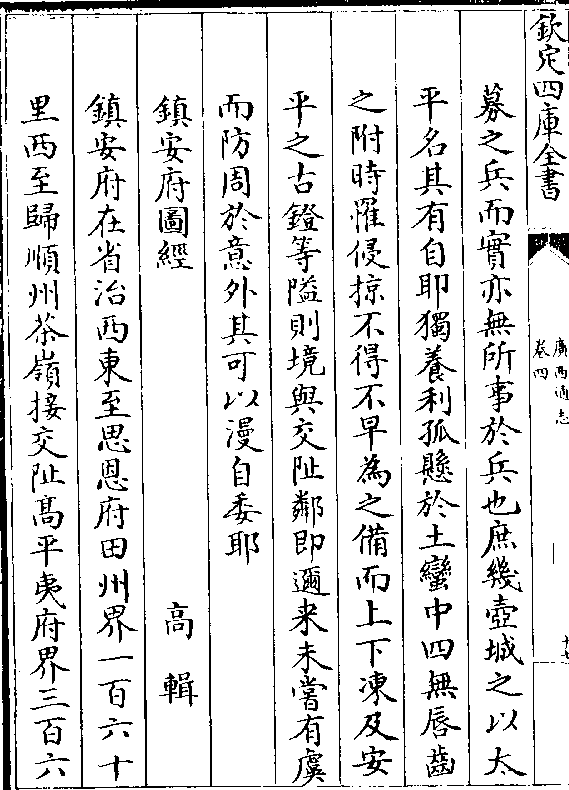 欽定四庫全書
廣西通志
卷四
募之兵而實亦無所事於兵也庶幾壺城之以太
平名其有自耶獨養利孤懸於土蠻中四無唇齒
之附時罹侵掠不得不早為之備而上下凍及安
平之古鐙等隘則境與交阯鄰即邇来未嘗有虞
而防周於意外其可以漫自委耶
鎮安府圖經 高輯
鎮安府在省治西東至思恩府田州界一百六十
里西至歸順州茶嶺接交阯高平夷府界三百六